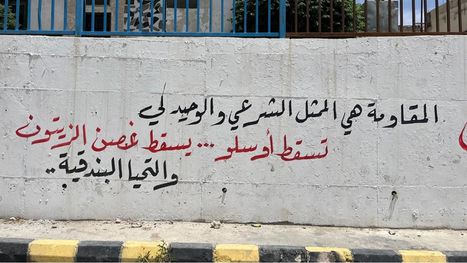 المقاومة هي الممثل الشرعي والوحيد لي
تسقط أوسلو... يسقط غصن الزيتون
والتحيا البندقية..